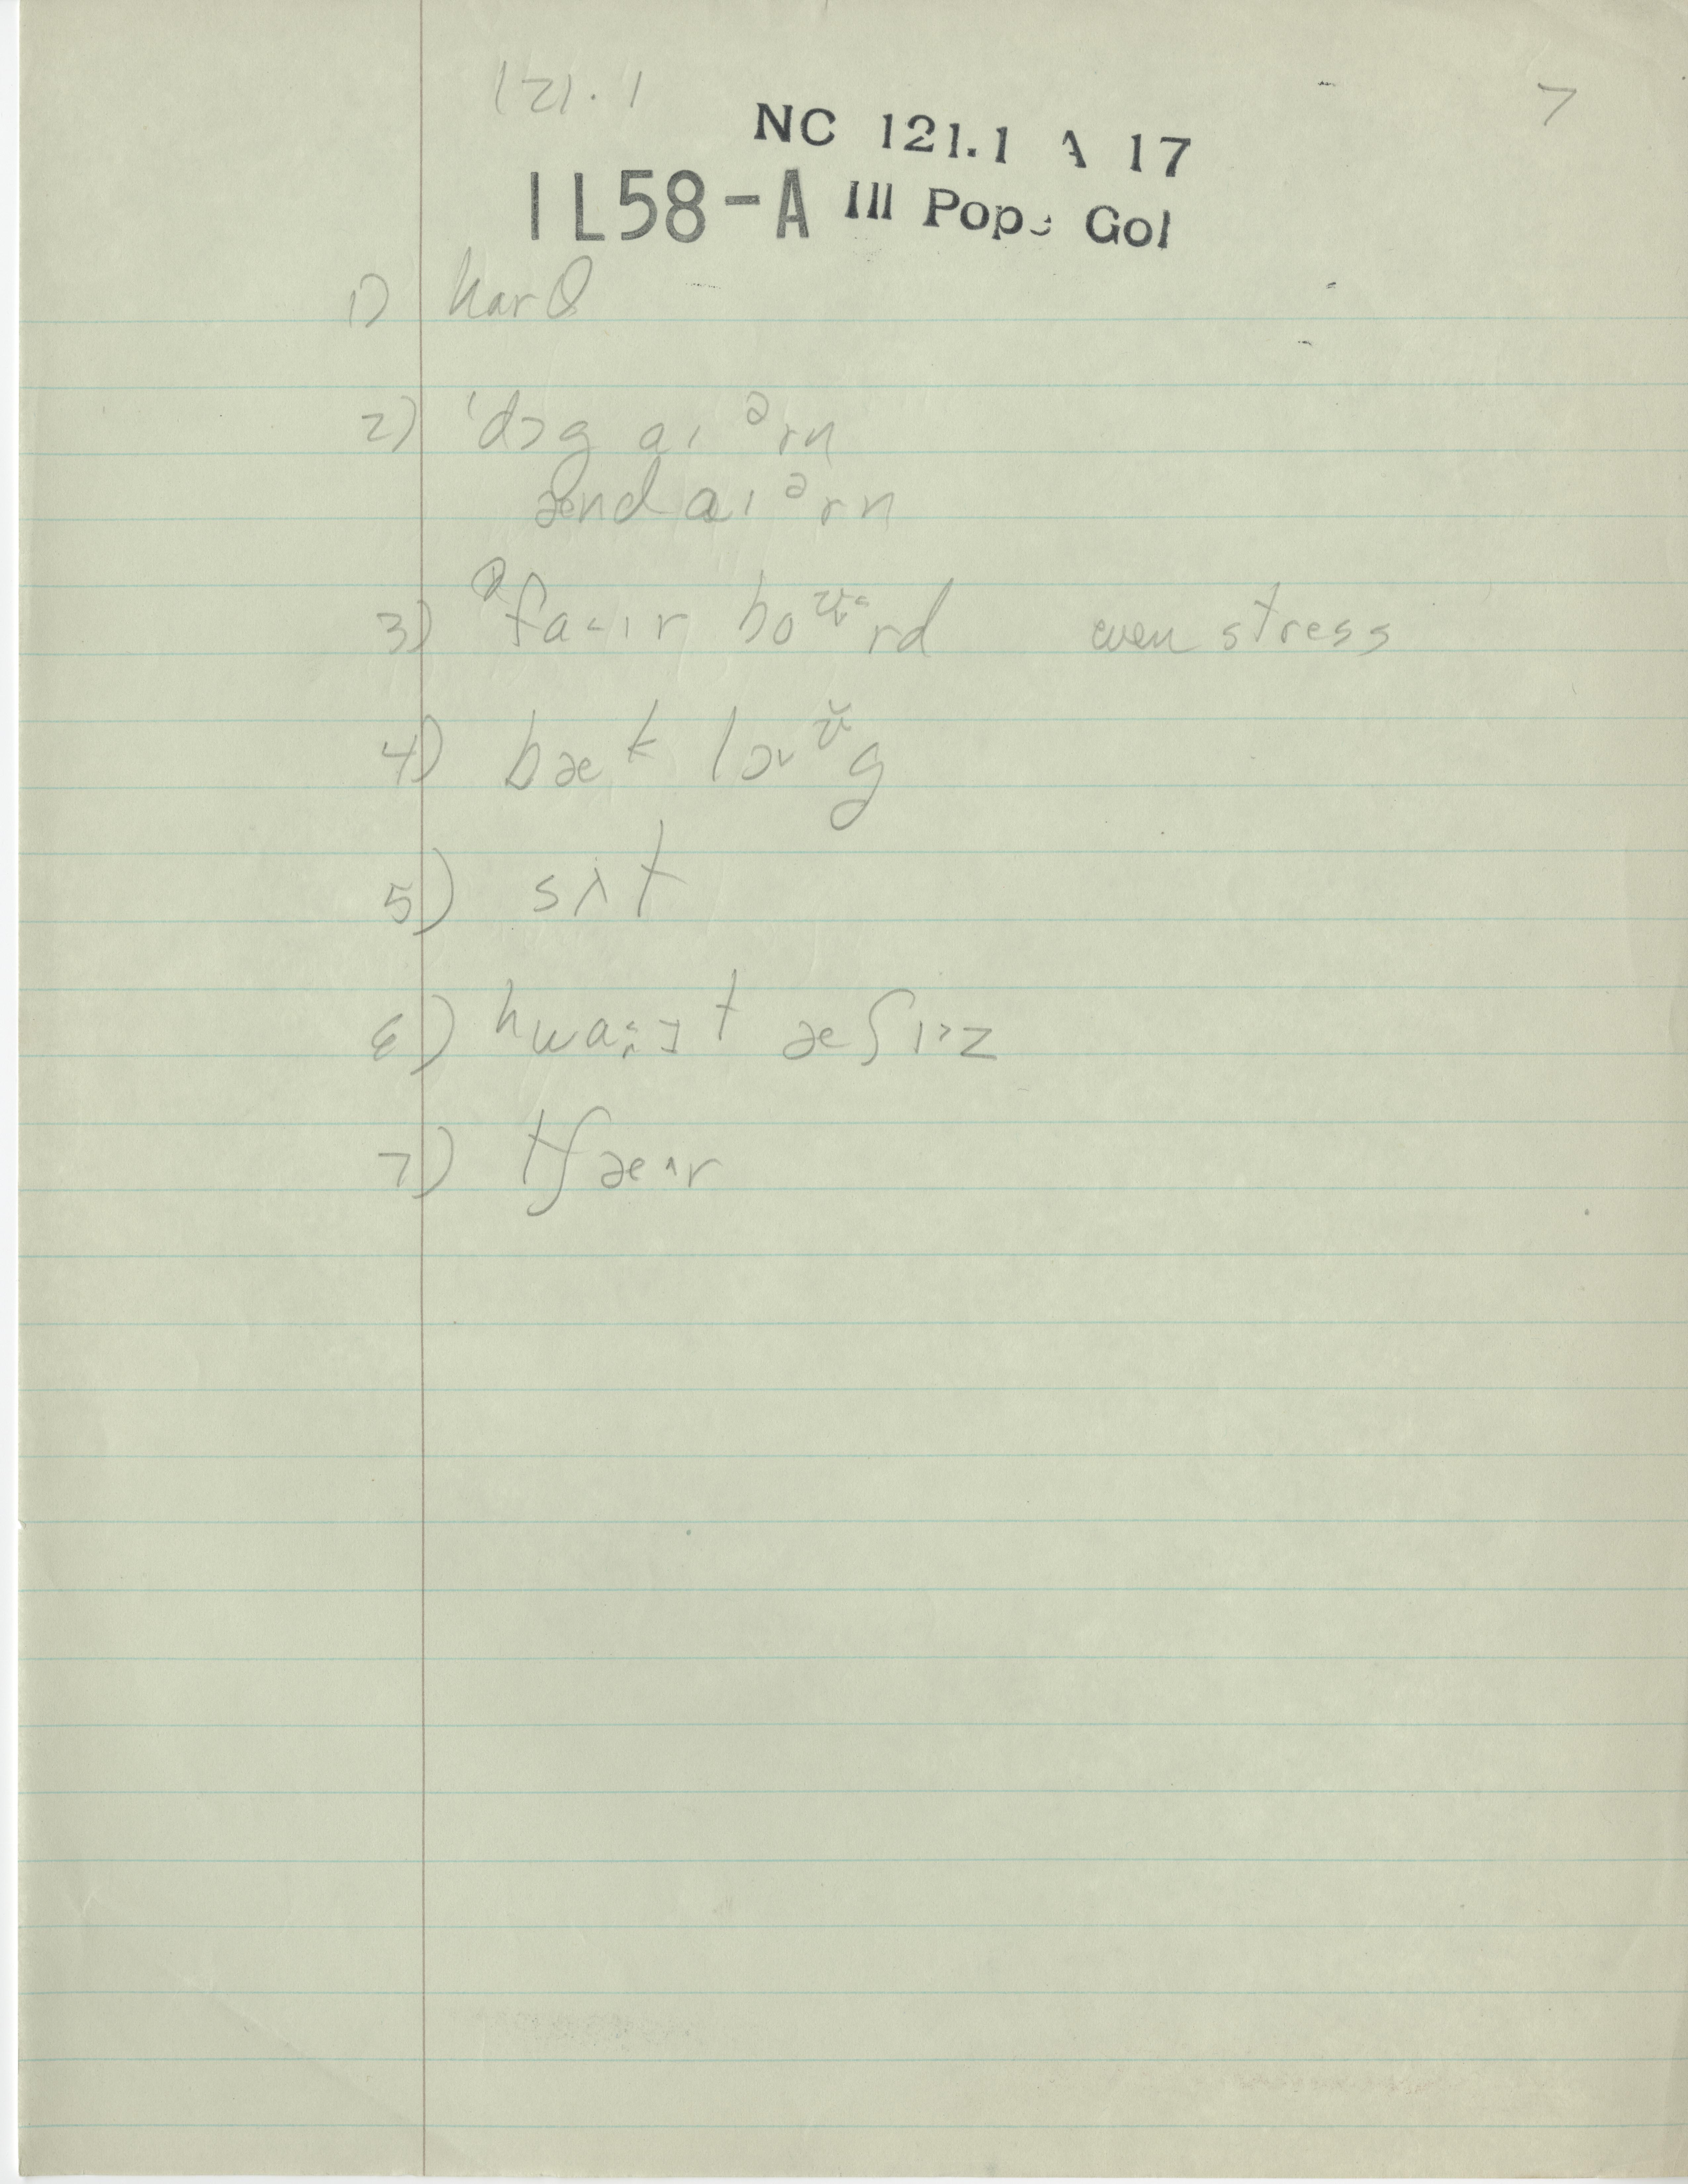 121.1 7
NC 121.1 A 17
IL58-A Ill Pope Gol
1) harθ
2) 'dɔg aɪ ᵊrn
ænd aɪ ᵊrn
3) fa˂ɪr bo rd even stress
4) bæk lɔ˅ᶷ̆g
5) sɪt
6) hwa ɪt æʃɪ˃z
7) tʃæ^r